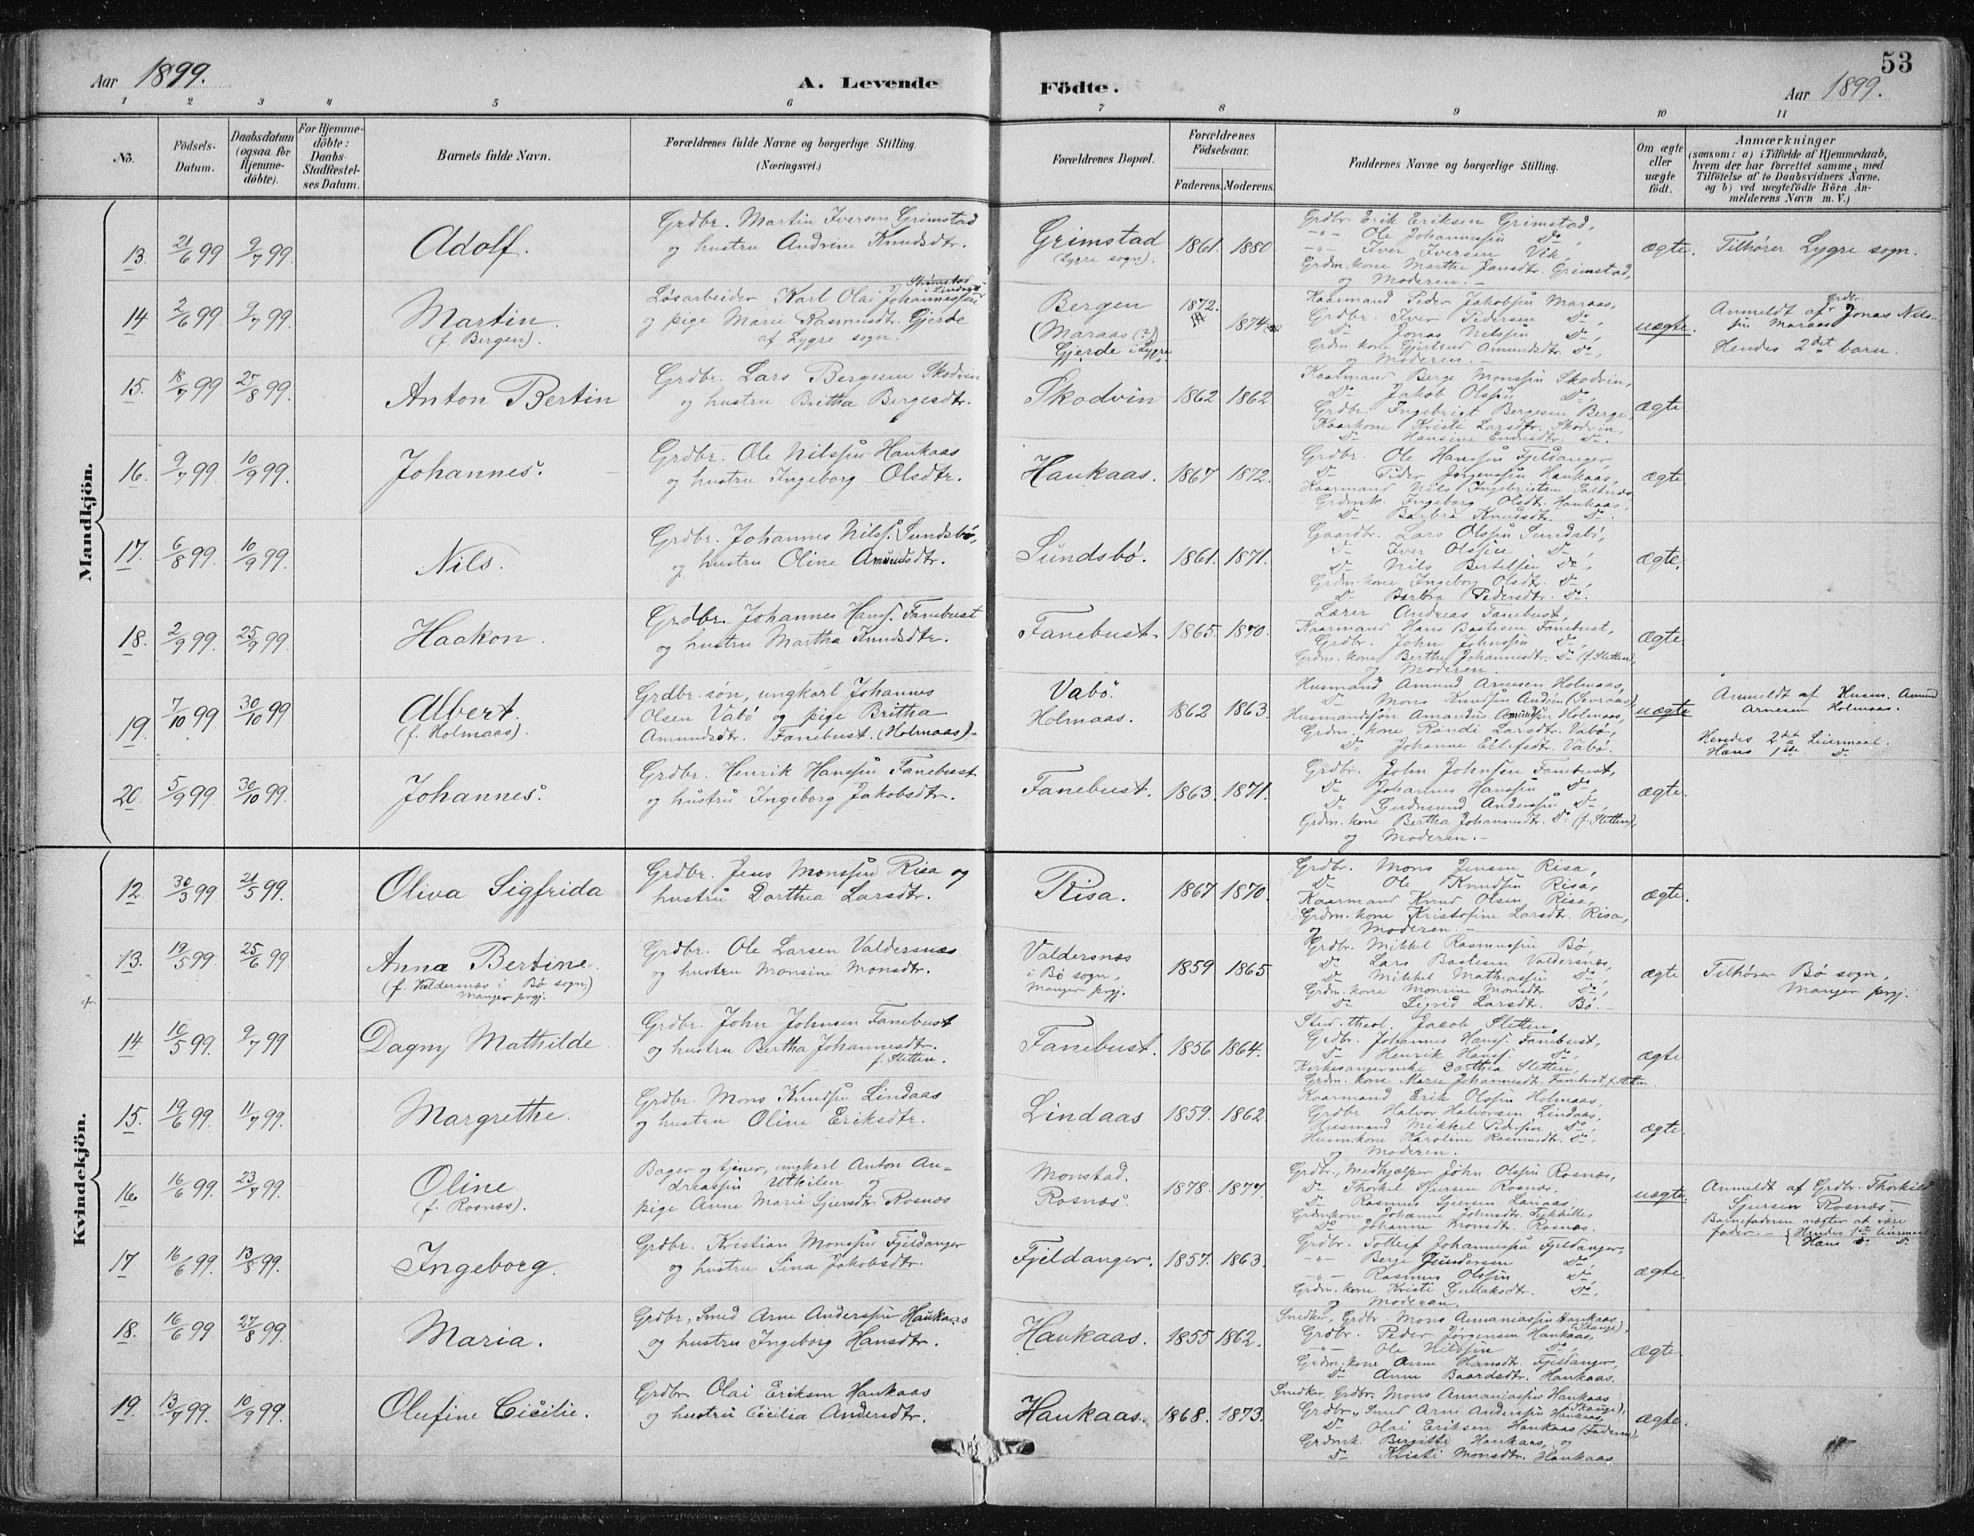 53
Aar 1899.
A. Levende Födte.
Aar 1899.
1 2 3 4 5 6 7 8 9 10 11
No.
Födsels-
Datum.
Daabsdatum
(ogsaa for
Hjemme-
döbte).
For Hjemme-
döbte:
Daabs-
Stadfæstel-
ses Datum.
Barnets fulde Navn.
Forældrenes fulde Navne og borgerlige Stilling.
(Næringsvei.)
Forældrenes Bopæl.
Forældrenes
Födselsaar.
Faderens. Moderens.
Faddernes Navne og borgerlige Stilling.
Om ægte
eller
uægte
födt.
Anmærkninger
(saasom: a) i Tilfælde af Hjemmedaab,
hvem der har forrettet samme, med
Tilföielse af to Daabsvidners Navne,
og b) ved uægtefödte Börn An-
melderens Navn m. V.)
Mandkjön.
13. 21/6 99 9/7 99.
Adolf.
Grdbr. Martin Iversen Grimstad
og hustru Andrine Knudsdtr.
Grimstad
(Lygre sogn).
1861. 1880
Grdbr. Erik Eriksen Grimstad,
-"- Ole Johannessen Do,
-"- Iver Iversen Vik,
Grdm.kone Marthe Jansdtr. Grimstad,
og Moderen. -
ægte.
Tilhører Lygre sogn.
14 2/6 99. 9/7 99.
Martin.
(f. Bergen).
Løsarbeider Karl Olai Johannessen
og pige Marie Rasmusdtr. Gjerde
af Lygre sogn.
Bergen
(Maraas (?)
Gjerde i Lygre
1872. 1874
Kaarmand Peder Jakobsen Maraas,
Grdbr. Iver Pedersen Do,
Do Jonas Nilssen Do,
Grdm.kone Amundsdtr. Do,
og Moderen. -
uægte.
Anmeldt af grdbr. Jonas Nils-
sen Maraas
Hendes 2det barn.
15. 18/7 99 27/8 99.
Anton Bertin
Grdbr. Lars Bergesen Skodvin
og hustru Britha Bergesdtr.
Skodvin
1862 1862
Kaarmand Berge Monssen Skodvin,
Do Jakob Olssen Do,
Grdbr. Ingebrigt Bergesen Berge,
Kaarkone Kristi Larsdtr. Skodvin,
Do Hansine Do.
ægte
16. 9/7 99 10/9 99.
Johannes.
Grdbr. Ole Nilssen Haukaas
og hustru Ingeborg Olsdtr.
Haukaas.
1867 1872.
Grdbr. Ole Hanssen Fjeldanger,
Do Peder Jørgenssen Haukaas,
Kaarmand Nils Ingebrigtsen
Grdmk. Ingeborg Olsdtr. Haukaas,
Do Barbra Knudsdtr. Do
ægte.
17. 6/8 99 10/9 99.
Nils.
Grdbr. Johannes Nilss. Sundsbø,
og hustru Oline Amundsdtr.
Sundsbø.
1861. 1871.
Gaardbr. Lars Olssen Sundsbø,
Do Iver Olssen Do,
Do Nils Bertelsen Do,
Grdm.kone Ingeborg Olsdtr. Do,
Do Barbra Pedersdtr. Do.
ægte.
18. 2/9 99. 25/9 99.
Haakon.
Grdbr. Johannes Hanss. Fanebust
og hustru Martha Knudsdtr.
Fanebust.
1865. 1870.
Lærer Andreas Fanebust,
Kaarmand Hans Bastesen Fanebust,
Grdbr. John Johnsen Do,
Grdm.kone Berthe Johannesdtr. Do (f. Sletten),
og Moderen
ægte
19. 7/10 99. 30/10 99
Albert.
(f. Holmaas).
Grdbr.søn, ungkarl Johannes
Olsen Vabø og pige Britha
Amundsdtr. Fanebust. (Holmaas).
Vabø.
Holmaas.
1862 1863.
Husmand Amund Arnesen Holmaas,
Do Mons Knudsen
Husmandssøn Amandus Amundsen Holmaas,
Grdm.kone Randi Larsdtr. Vabø,
Do Johanne Ellefsdtr. Vabø.
uægte
Anmeldt af Husm. Amund
Arnesen Holmaas.
Hendes 2det Leiermaal.
Hans 1ste Do.
20. 5/9 99. 30/10 99.
Johannes.
Grdbr. Henrik Hanssen Fanebust
og hustru Ingeborg Jakobsdtr.
Fanebust.
1863. 1871.
Grdbr. John Johnsen Fanebust,
Do Johannes Hanssen Do,
Do Gudmund Anderssen Do,
Grdm.kone Bertha Johannesdtr. Do (f. Sletten),
og Moderen. -
ægte.
Kvindekjön.
12 30/3 99 21/5 99.
Oliva Sigfrida
Grdbr. Jens Monssen Risa og
hustru Dorthea Larsdtr.
Risa.
1867 1870.
Grdbr. Mons Jensen Risa,
Do Ole Knudsen Risa,
Kaarmand Knud Olsen Risa,
Grdm.kone Kristofine Larsdtr. Risa,
og Moderen. -
ægte.
13. 19/5 99. 25/6 99
Anna Bertine.
(f. Valdersnæs i Bø sogn.)
Manger prgj.
Grdbr. Ole Larsen Valdersnæs
og hustru Monsine Monsdtr.
Valdersnæs
i Bø sogn,
Manger prgj.
1859 1865.
Grdbr. Mikkel Rasmussen Bø
Do Lars Bastesen Valdersnæs,
Do Mikkel Mathiassen Do,
Grdm.kone Monsine Monsdtr. Do,
Do Sigrid Larsdtr. Bø. -
ægte
Tilhører Bø sogn,
Manger prgj.
14. 10/5 99. 9/7 99
Dagny Mathilde
Grdbr. John Johnsen Fanebust
og hustru Bertha Johannesdtr.
f. Sletten.
Fanebust.
1856 1864.
Stud. theol. Jacob Sletten,
Grdbr. Johannes Hanss. Fanebust,
Do Henrik Hanss. Do,
Kirkesangerenke Dorthea Sletten,
Grdm.kone Marie Johannesdtr. Fanebust, f. Sletten.
ægte
15. 19/6 99. 11/7 99.
Margrethe.
Grdbr. Mons Knudsen Lindaas
og hustru Oline Eriksdtr.
Lindaas
1859. 1862.
Kaarmand Erik Olssen Holmaas,
Grdbr. Halvor Halvorsen Lindaas,
Husmand Mikkel Pedersen Do,
Husm.kone Karoline Rasmusdtr. Do,
og Moderen.
ægte.
16 16/6 99. 23/7 99.
Oline
(f. Rosnæs).
Bager og tjener, ungkarl Anton An-
dreassen Utkilen og
pige Anne Marie Sjursdtr. Rosnæs
Monstad.
Rosnæs.
1878. 1877.
Grdbr., Medhjælper John Olssen Rosnæs,
Do Thorkel Sjursen Rosnæs,
Do Rasmus Sjursen
Grdm.kone Johanne Johnsdtr.
Do Johanne Monsdtr. Rosnæs.
uægte.
Anmeldt af Grdbr. Thorkild
Sjursen Rosnæs. -
Barnefaderen nægter at være
fader. - Hendes 1ste leiermaal.
Hans Do. Do.
17 16/6 99. 13/8 99.
Ingeborg.
Grdbr. Kristian Monssen Fjeldanger
og hustru Sina Jakobsdtr.
Fjeldanger.
1857. 1863.
Grdbr. Tollef Johannessen Fjeldanger,
-"- Berge Gundersen Do,
-"- Rasmus Olssen Do,
Grdm.kone Kristi Do,
og Moderen.
ægte.
18. 16/6 99 27/8 99.
Maria.
Grdbr., Smed Arne Anderssen Haukaas
og hustru Ingeborg Hansdtr.
Haukaas.
1855 1862.
Snedker, Grdbr. Mons Annaniassen Haukaas
(Skauge),
Grdbr. Peder Jørgensen Haukaas,
-"- Ole Nilssen Do,
Grdm.kone Anne Hansdtr. Fjeldanger,
Do Anne Baardsdtr. Haukaas.
ægte.
19. 13/7 99. 10/9 99.
Olufine Cicilie.
Grdbr. Olai Eriksen Haukaas
og hustru Cicilia Andersdtr.
Haukaas.
1868. 1873.
Snedker, Grdbr. Mons Annaniassen Haukaas
(Skauge),
Grdbr., Smed Arne Anderssen Haukaas,
Do Olai Eriksen Haukaas (Faderen),
Grdmk. Bergitte Haukaas, og
Do Kristi Monsdtr. Haukaas
ægte.